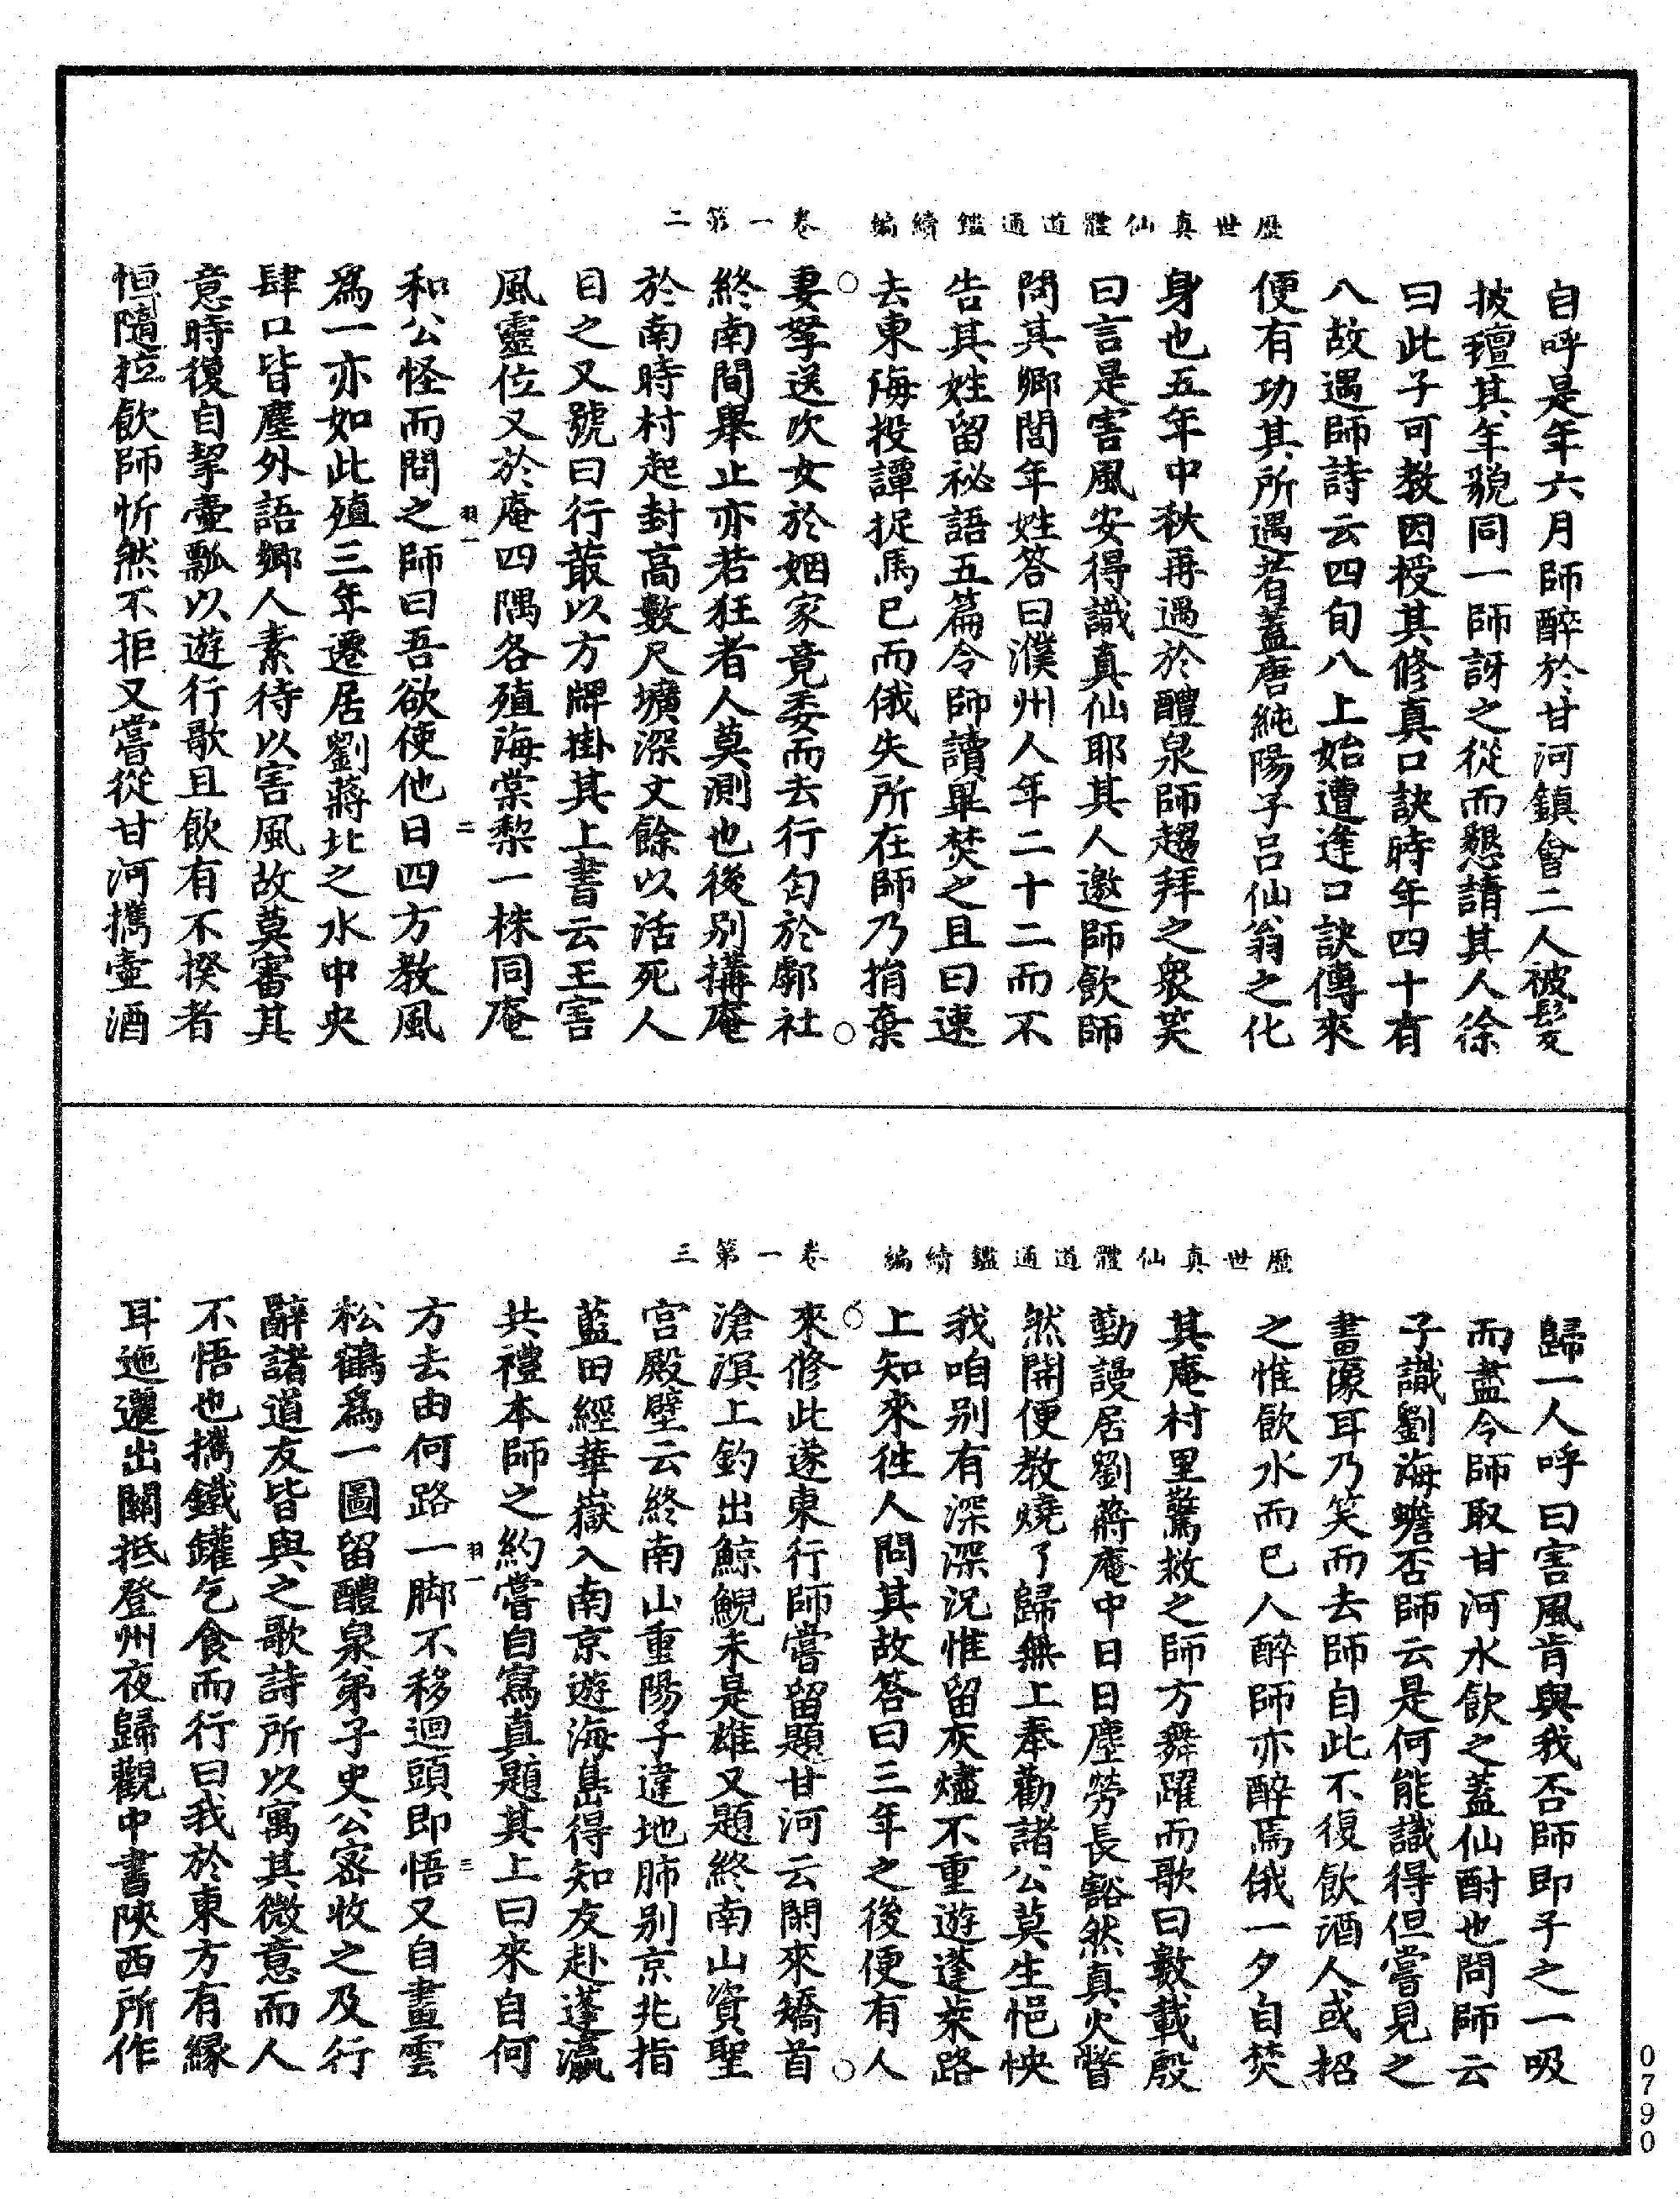 歷世真仙體道通鑑續編　卷一第二
自呼是年六月師醉於甘河鎮會二人被髮
披氊其年貌同一師訝之從而懇請其人徐
曰此子可教因授其修真口訣時年四十有
八故遇師詩云四旬八上始遭逢口訣傳來
便有功其所遇者蓋唐純陽子呂仙翁之化
身也五年中秋再遇於醴泉師趨拜之衆笑
曰言是害風安得識真仙耶其人邀師飲師
問其鄉閭年姓答曰濮州人年二十二而不
告其姓留祕語五篇令師讀畢焚之且曰速
去東海投譚捉馬已而俄失所在師乃捐棄
妻孥送次女於姻家竟委而去行匄於鄠社
終南間舉止亦若狂者人莫測也後別搆庵
於南時村起封高數尺壙深丈餘以活死人
目之又號曰行菆以方牌掛其上書云王害
風靈位又於庵四隅各殖海棠梨一株同庵
羽一
二
和公怪而問之師曰吾欲使他日四方教風
爲一亦如此殖三年遷居劉蔣北之水中央
肆口皆塵外語鄉人素待以害風故莫審其
意時復自挈壷瓢以遊行歌且飲有不揆者
恒隨拉飲師忻然不拒又嘗從甘河攜壷酒
歷世真仙體道通鑑續編　卷一第三
歸一人呼曰害風肯與我否師即予之一吸
而盡令師取甘河水飲之蓋仙酎也問師云
子識劉海蟾否師云是何能識得但嘗見之
畫像耳乃笑而去師自此不復飲酒人或招
之惟飲水而已人醉師亦醉焉俄一夕自焚
其庵村里驚救之師方舞躍而歌曰數載殷
勤謾居劉蔣庵中日日塵勞長豁然真火瞥
然開便教燒了歸無上奉勸諸公莫生悒怏
我咱別有深深況惟留灰燼不重遊蓬萊路
上知來徃人問其故答曰三年之後便有人
來修此遂東行師嘗留題甘河云閑來矯首
滄溟上釣出鯨鯢未是雄又題終南山資聖
宮殿壁云終南山重陽子違地肺別京兆指
藍田經華嶽入南京遊海島得知友赴蓬瀛
共禮本師之約嘗自寫真題其上曰來自何
羽一
三
方去由何路一脚不移迴頭即悟又自畫雲
松鶴爲一圖留醴泉弟子史公密收之及行
辭諸道友皆與之歌詩所以寓其微意而人
不悟也攜鐵罐乞食而行曰我於東方有緣
耳迤邐出關抵登州夜歸觀中書陝西所作
0790